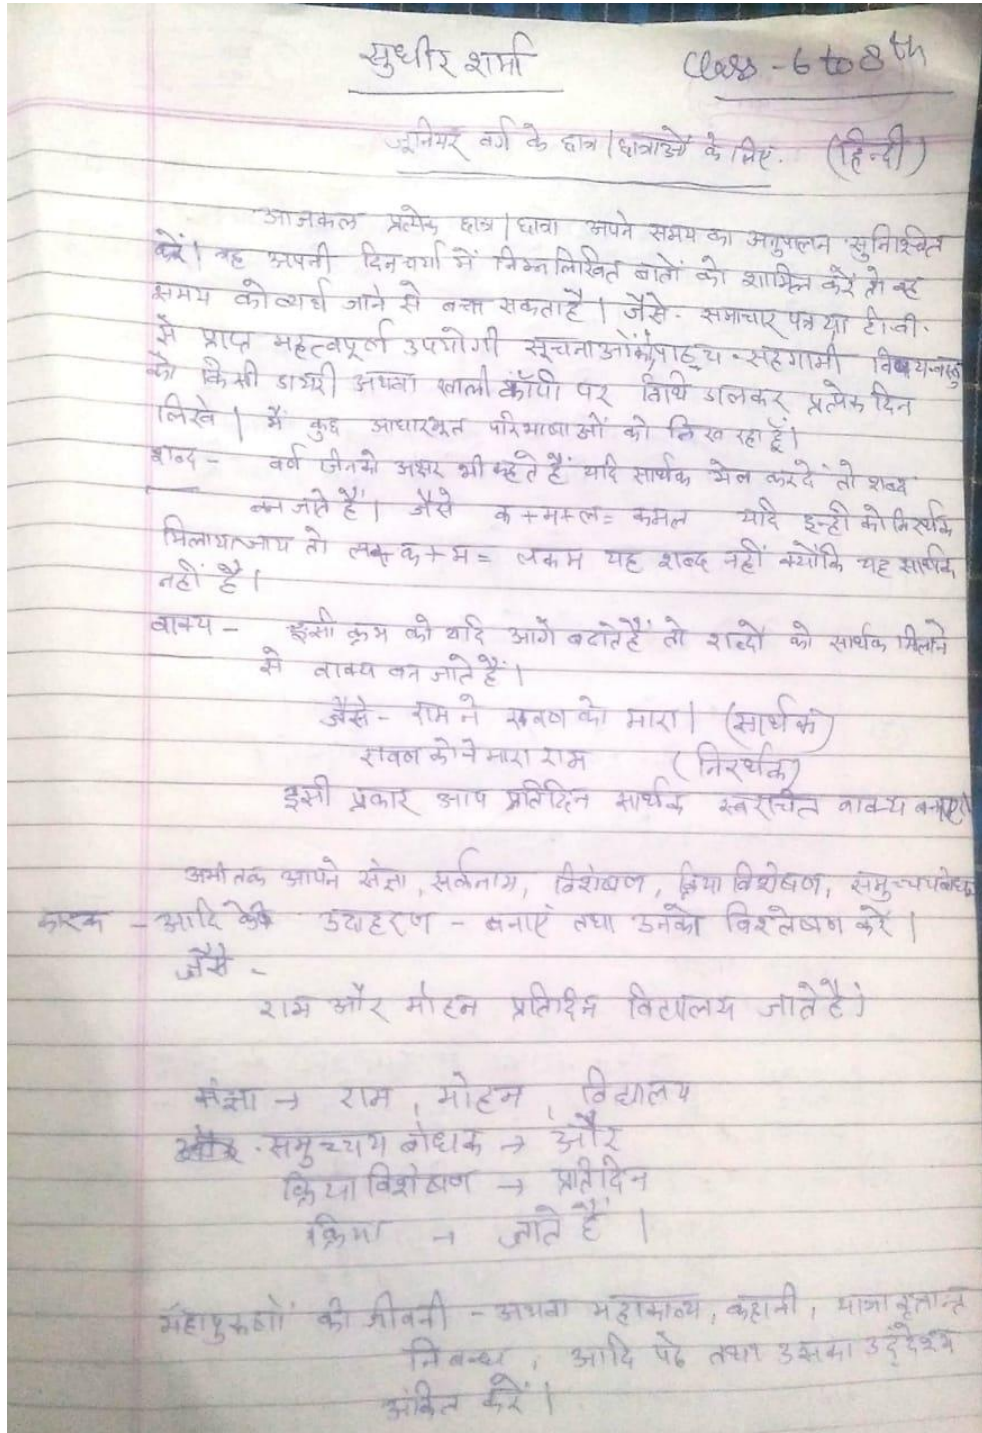 सुधीर शर्मा
Class - 6 to 8th
जूनियर वर्ग के छात्र/छात्राओं के लिए. (हिन्दी)
आजकल प्रत्येक छात्र/छात्रा अपने समय का अनुपालन सुनिश्चित
करें। वह अपनी दिनचर्या में निम्नलिखित बातों को शामिल करें तो वह
समय को व्यर्थ जाने से बचा सकता है। जैसे- समाचार पत्र या टी.वी.
से प्राप्त महत्वपूर्ण उपयोगी सूचनाओं को, पाठ्य-सहगामी विषय-वस्तु
को किसी डायरी अथवा खाली कॉपी पर तिथि डालकर प्रत्येक दिन
लिखे। मैं कुछ आधारभूत परिभाषाओं को लिख रहा हूँ।
शब्द - वर्ण जिनको अक्षर भी कहते हैं यदि सार्थक मेल कर दें तो शब्द
बन जाते हैं। जैसे क+म+ल= कमल यदि इन्ही को निरर्थक
मिलाया जाय तो ल+क+म= लकम यह शब्द नहीं क्योंकि यह सार्थक
नहीं है।
वाक्य - इसी क्रम को यदि आगे बढाते हैं तो शब्दों को सार्थक मिलाने
से वाक्य बन जाते हैं।
जैसे- राम ने रावण को मारा। (सार्थक)
रावण को ने मारा राम (निरर्थक)
इसी प्रकार आप प्रतिदिन सार्थक स्वरचित वाक्य बनाएं।
अभी तक आपने संज्ञा, सर्वनाम, विशेषण, क्रिया विशेषण, समुच्चयबोधक
कारक - आदि के उदाहरण - बनाएं तथा उनका विश्लेषण करें।
जैसे -
राम और मोहन प्रतिदिन विद्यालय जाते हैं।
संज्ञा → राम, मोहन, विद्यालय
समुच्चय बोधक → और
क्रिया विशेषण → प्रतिदिन
क्रिया → जाते हैं।
महापुरुषों की जीवनी - अथवा महाकाव्य, कहानी, यात्रा वृतान्त
निबन्ध, आदि पढे तथा उसका उद्देश्य
अंकित करें।